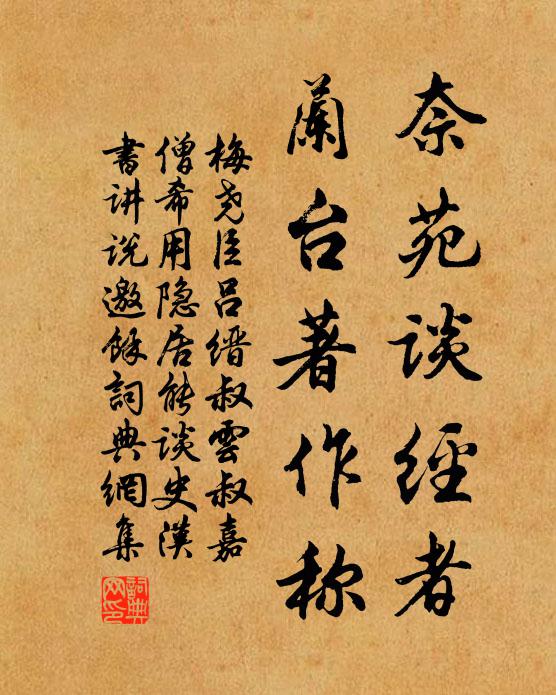 奈苑谈经者
蘭台著作称
梅尧臣吕缙叔雲叔嘉
僧希用隐居能谈史漢
書讲说邀馀詞典網集
詞典網印